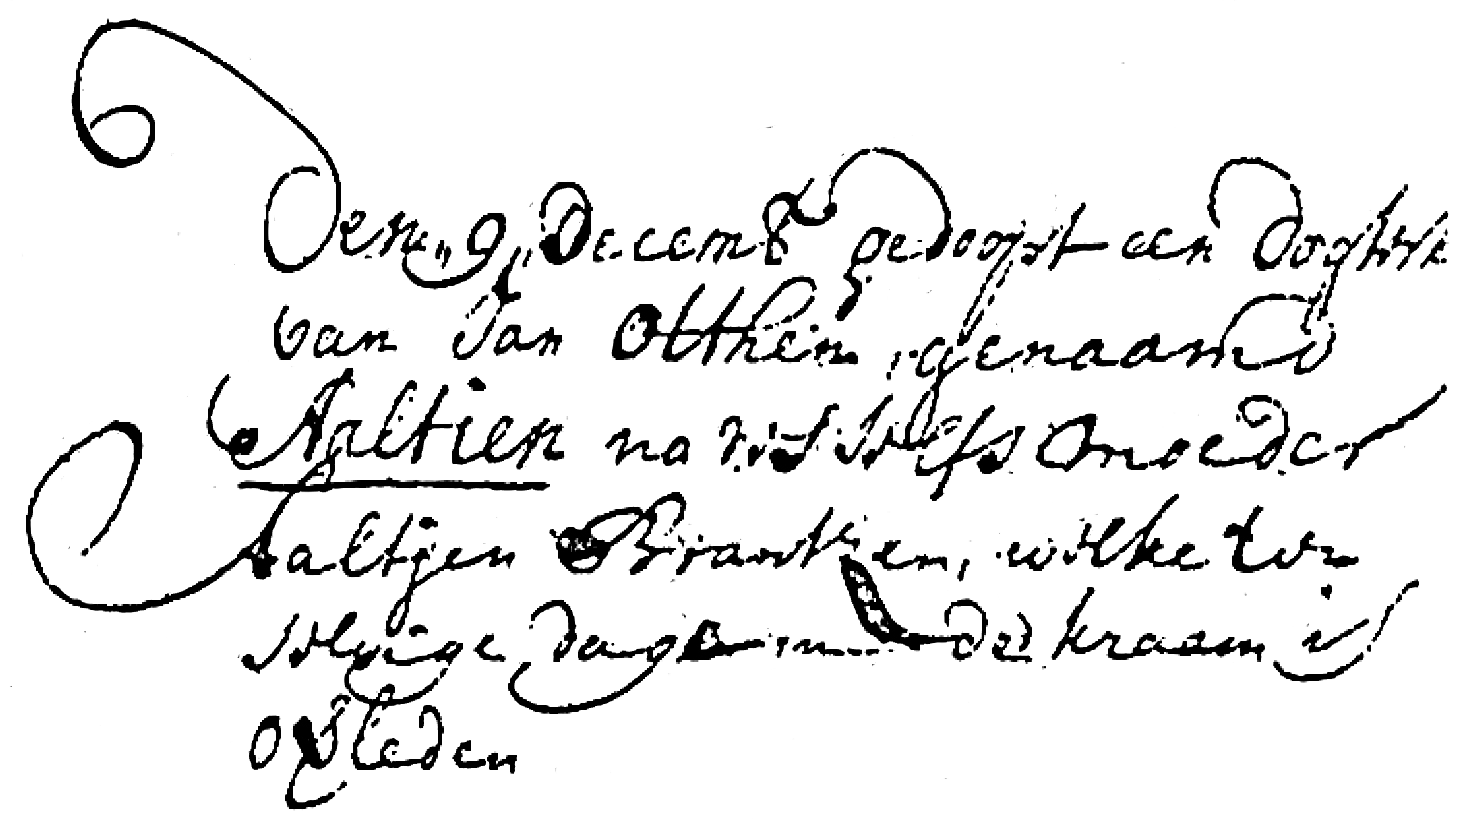 Den „9„ Decemb gedoopt een Dogter
van Jan Otthen, genaamd
Aaltien na des selfs moeder
Aaltjen Brantzen, welke ten
selvige dage in de kraam is
overleden